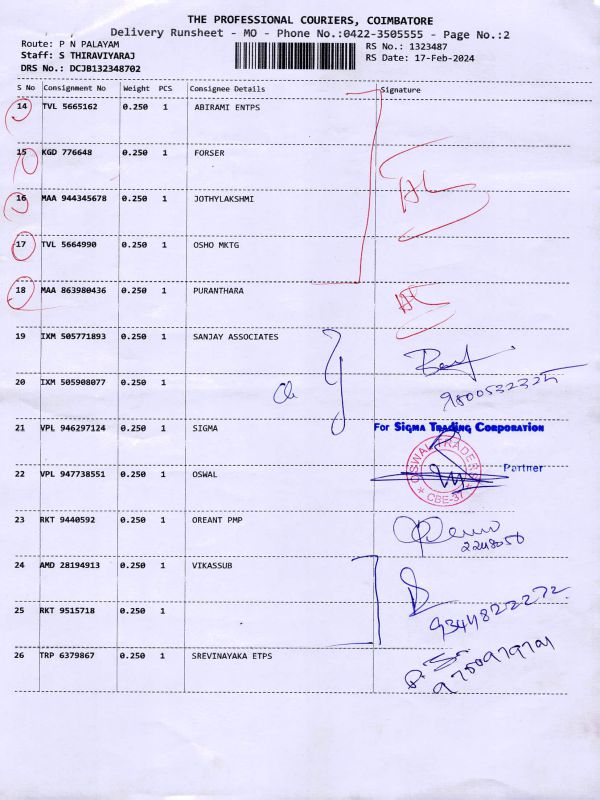 THE PROFESSIONAL COURIERS, COIMBATORE
Delivery Runsheet - MO - Phone No.:0422-3505555 - Page No.:2
Route: P N PALAYAM
Staff: S THIRAVIYARAJ
DRS No.: DCJB132348702
RS No.: 1323487
RS Date: 17-Feb-2024
S No Consignment No Weight PCS Consignee Details Signature
14 TVL 5665162 0.250 1 ABIRAMI ENTPS
15 KGD 776648 0.250 1 FORSER
16 MAA 944345678 0.250 1 JOTHYLAKSHMI
17 TVL 5664990 0.250 1 OSHO MKTG
18 MAA 863980436 0.250 1 PURANTHARA
19 IXM 505771893 0.250 1 SANJAY ASSOCIATES
20 IXM 505908077 0.250 1
21 VPL 946297124 0.250 1 SIGMA
For SIGMA TRADING CORPORATION
Partner
OSWAL TRADERS
CBE-37
22 VPL 947738551 0.250 1 OSWAL
23 RKT 9440592 0.250 1 OREANT PMP
2248050
24 AMD 28194913 0.250 1 VIKASSUB
9344822272
25 RKT 9515718 0.250 1
26 TRP 6379867 0.250 1 SREVINAYAKA ETPS